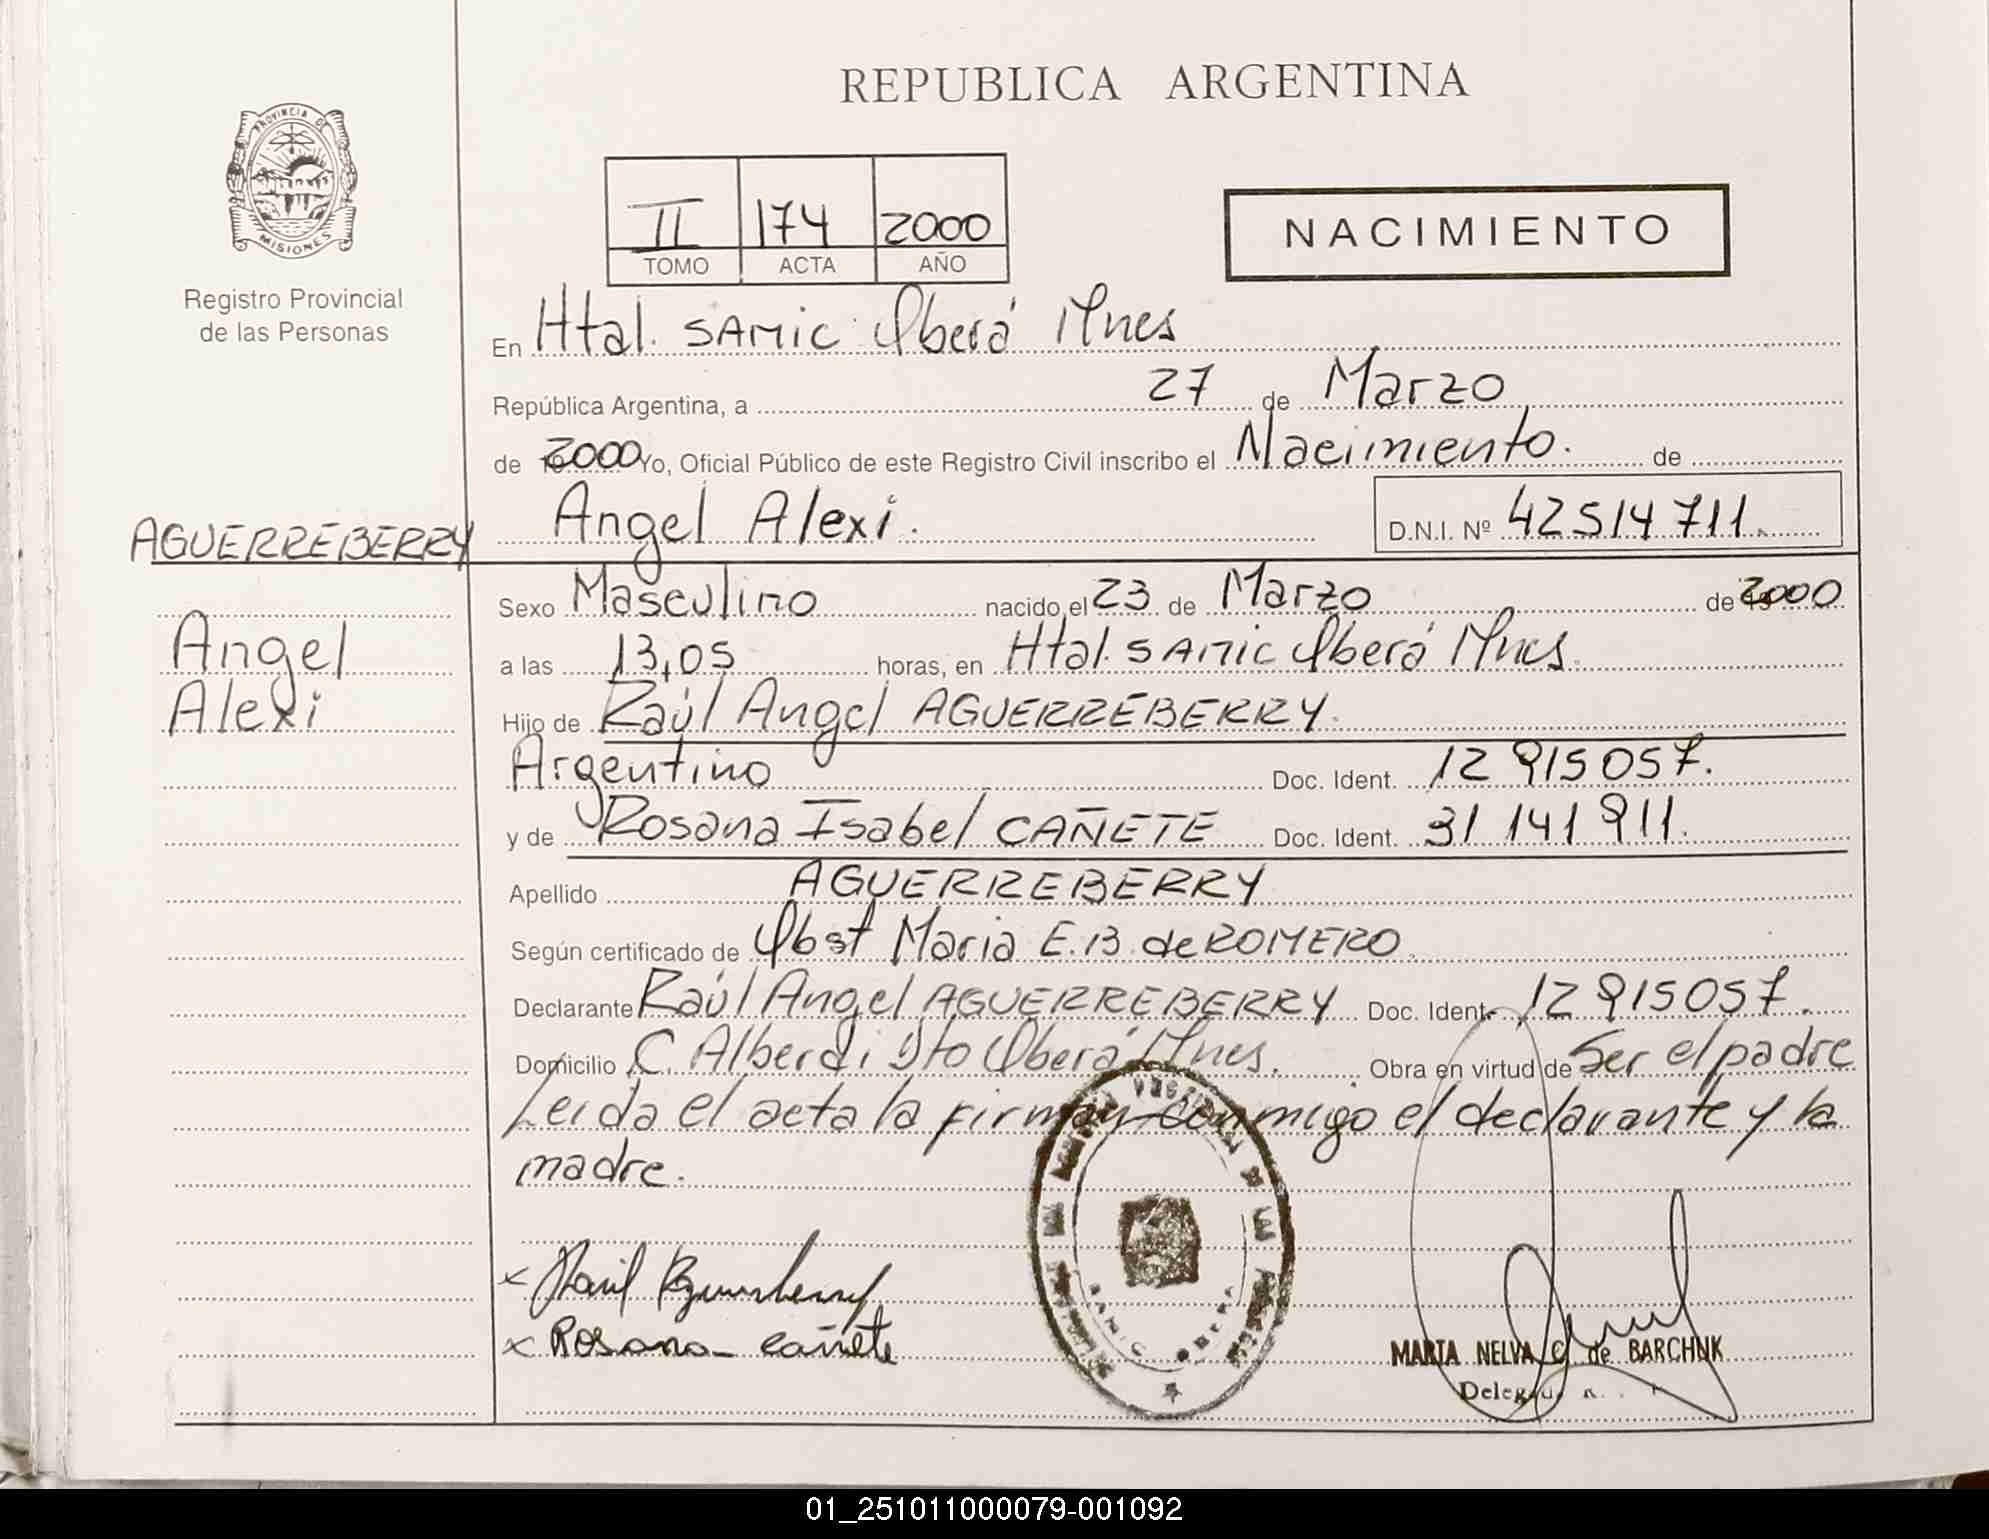 REPUBLICA ARGENTINA
PROVINCIA DE
MISIONES
Registro Provincial
de las Personas
II 174 2000
TOMO ACTA AÑO
NACIMIENTO
En Htal. SAMIC Oberá Mnes
República Argentina, a 27 de Marzo
de 2000 Yo, Oficial Público de este Registro Civil inscribo el Nacimiento. de
Angel Alexi. D.N.I. Nº 42514711.
AGUERREBERRY
Angel
Alexi
Sexo Masculino nacido el 23 de Marzo de 2000
a las 13,05 horas, en Htal. SAMIC Oberá Mnes.
Hijo de Raúl Angel AGUERREBERRY.
Argentino Doc. Ident. 12 915 057.
y de Rosana Isabel CAÑETE Doc. Ident. 31 141 911.
Apellido AGUERREBERRY
Según certificado de Obst Maria E.B. de ROMERO.
Declarante Raúl Angel AGUERREBERRY Doc. Ident. 12 915 057.
Domicilio C. Alberdi Dto Oberá Mnes. Obra en virtud de Ser el padre
Leida el acta la firman conmigo el declarante y la
madre.
x Raul Aguerreberry
x Rosana Cañete
SAMIC OBERA
MARTA NELVA C. de BARCHUK
01_251011000079-001092